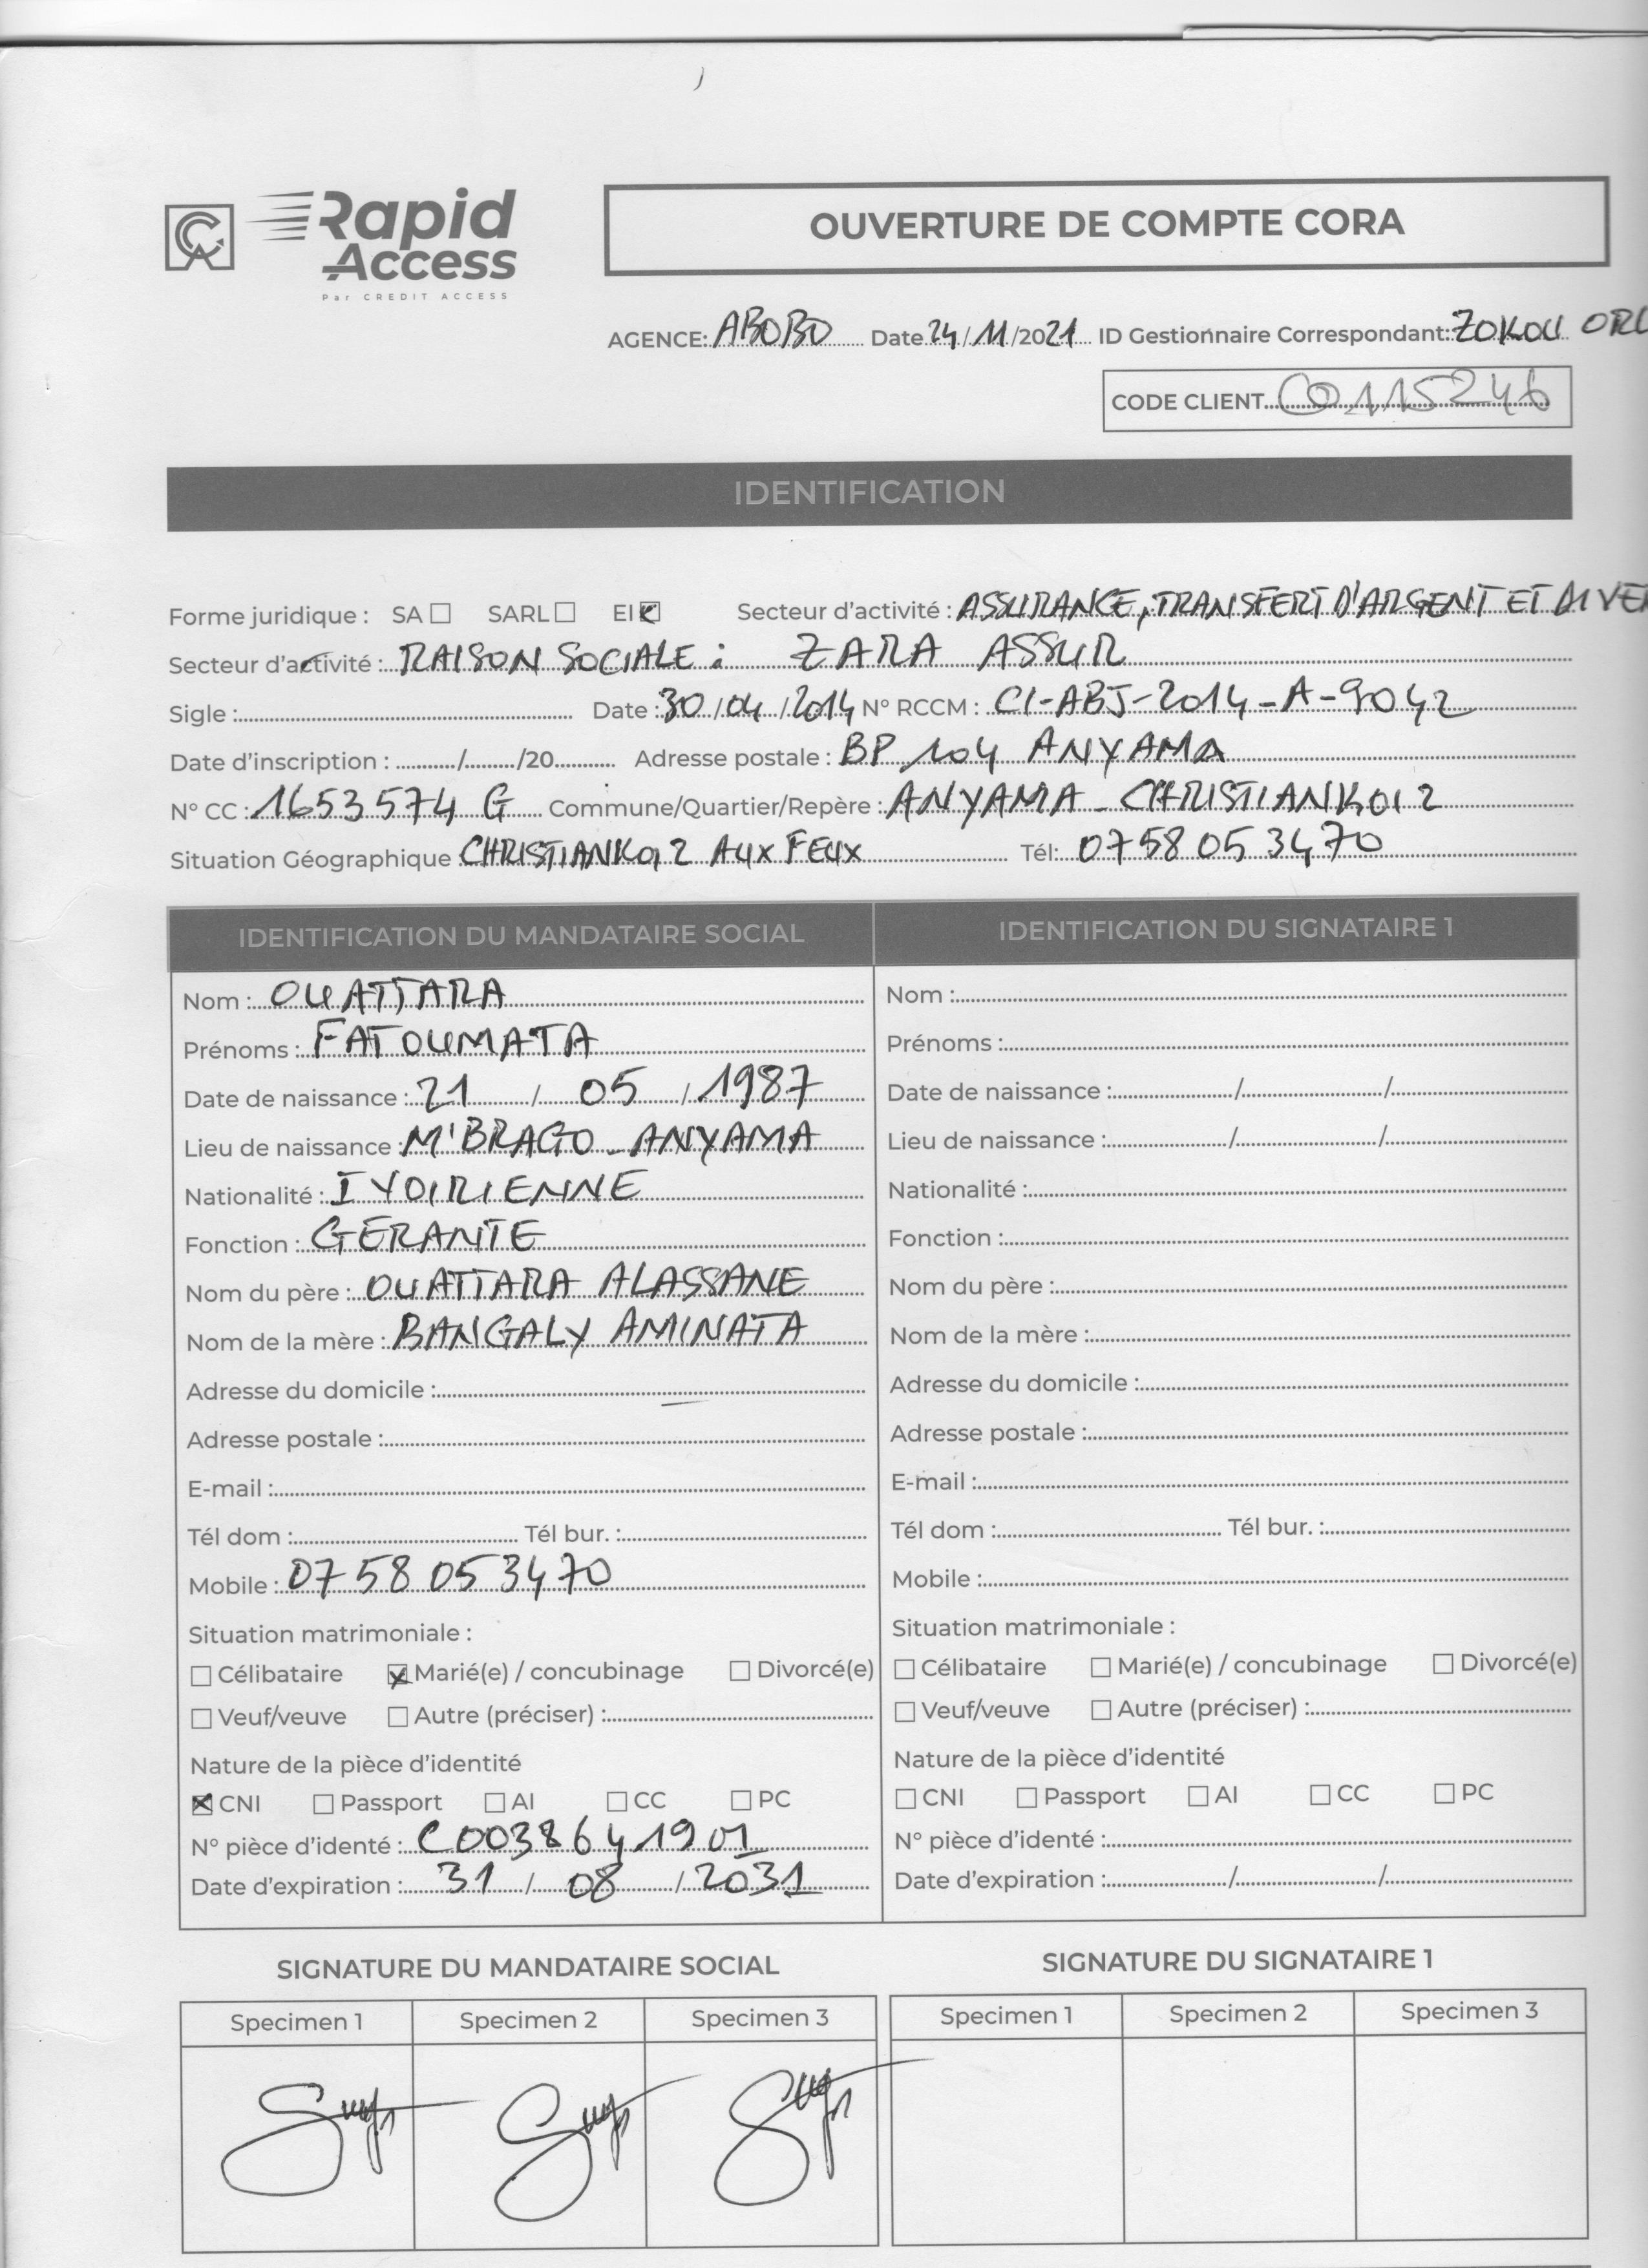 Rapid
Access
Par CREDIT ACCESS
OUVERTURE DE COMPTE CORA
AGENCE: ABOBO Date 24/11/2021 ID Gestionnaire Correspondant: ZOKOU
CODE CLIENT C0115246
IDENTIFICATION
Forme juridique : SA ☐ SARL ☐ EI ☒ Secteur d'activité : ASSURANCE, TRANSFERT D'ARGENT ET
Secteur d'activité : RAISON SOCIALE : ZARA ASSUR
Sigle : Date : 30/04/2014 N° RCCM : CI-ABJ-2014-A-9042
Date d'inscription : / /20 Adresse postale : BP 104 ANYAMA
N° CC : 1653574 G Commune/Quartier/Repère : ANYAMA - CHRISTIANKOI 2
Situation Géographique : CHRISTIANKOI 2 AUX FEUX Tél: 07 58 05 34 70
IDENTIFICATION DU MANDATAIRE SOCIAL
Nom : OUATTARA
Prénoms : FATOUMATA
Date de naissance : 21 / 05 / 1987
Lieu de naissance : M'BRAGO - ANYAMA
Nationalité : IVOIRIENNE
Fonction : GERANTE
Nom du père : OUATTARA ALASSANE
Nom de la mère : BANGALY AMINATA
Adresse du domicile :
Adresse postale :
E-mail :
Tél dom : Tél bur. :
Mobile : 07 58 05 34 70
Situation matrimoniale :
☐ Célibataire ☒ Marié(e) / concubinage ☐ Divorcé(e)
☐ Veuf/veuve ☐ Autre (préciser) :
Nature de la pièce d'identité
☒ CNI ☐ Passport ☐ AI ☐ CC ☐ PC
N° pièce d'identé : C0038641901
Date d'expiration : 31 / 08 / 2031
IDENTIFICATION DU SIGNATAIRE 1
Nom :
Prénoms :
Date de naissance : / /
Lieu de naissance : / /
Nationalité :
Fonction :
Nom du père :
Nom de la mère :
Adresse du domicile :
Adresse postale :
E-mail :
Tél dom : Tél bur. :
Mobile :
Situation matrimoniale :
☐ Célibataire ☐ Marié(e) / concubinage ☐ Divorcé(e)
☐ Veuf/veuve ☐ Autre (préciser) :
Nature de la pièce d'identité
☐ CNI ☐ Passport ☐ AI ☐ CC ☐ PC
N° pièce d'identé :
Date d'expiration : / /
SIGNATURE DU MANDATAIRE SOCIAL
Specimen 1 Specimen 2 Specimen 3
SIGNATURE DU SIGNATAIRE 1
Specimen 1 Specimen 2 Specimen 3